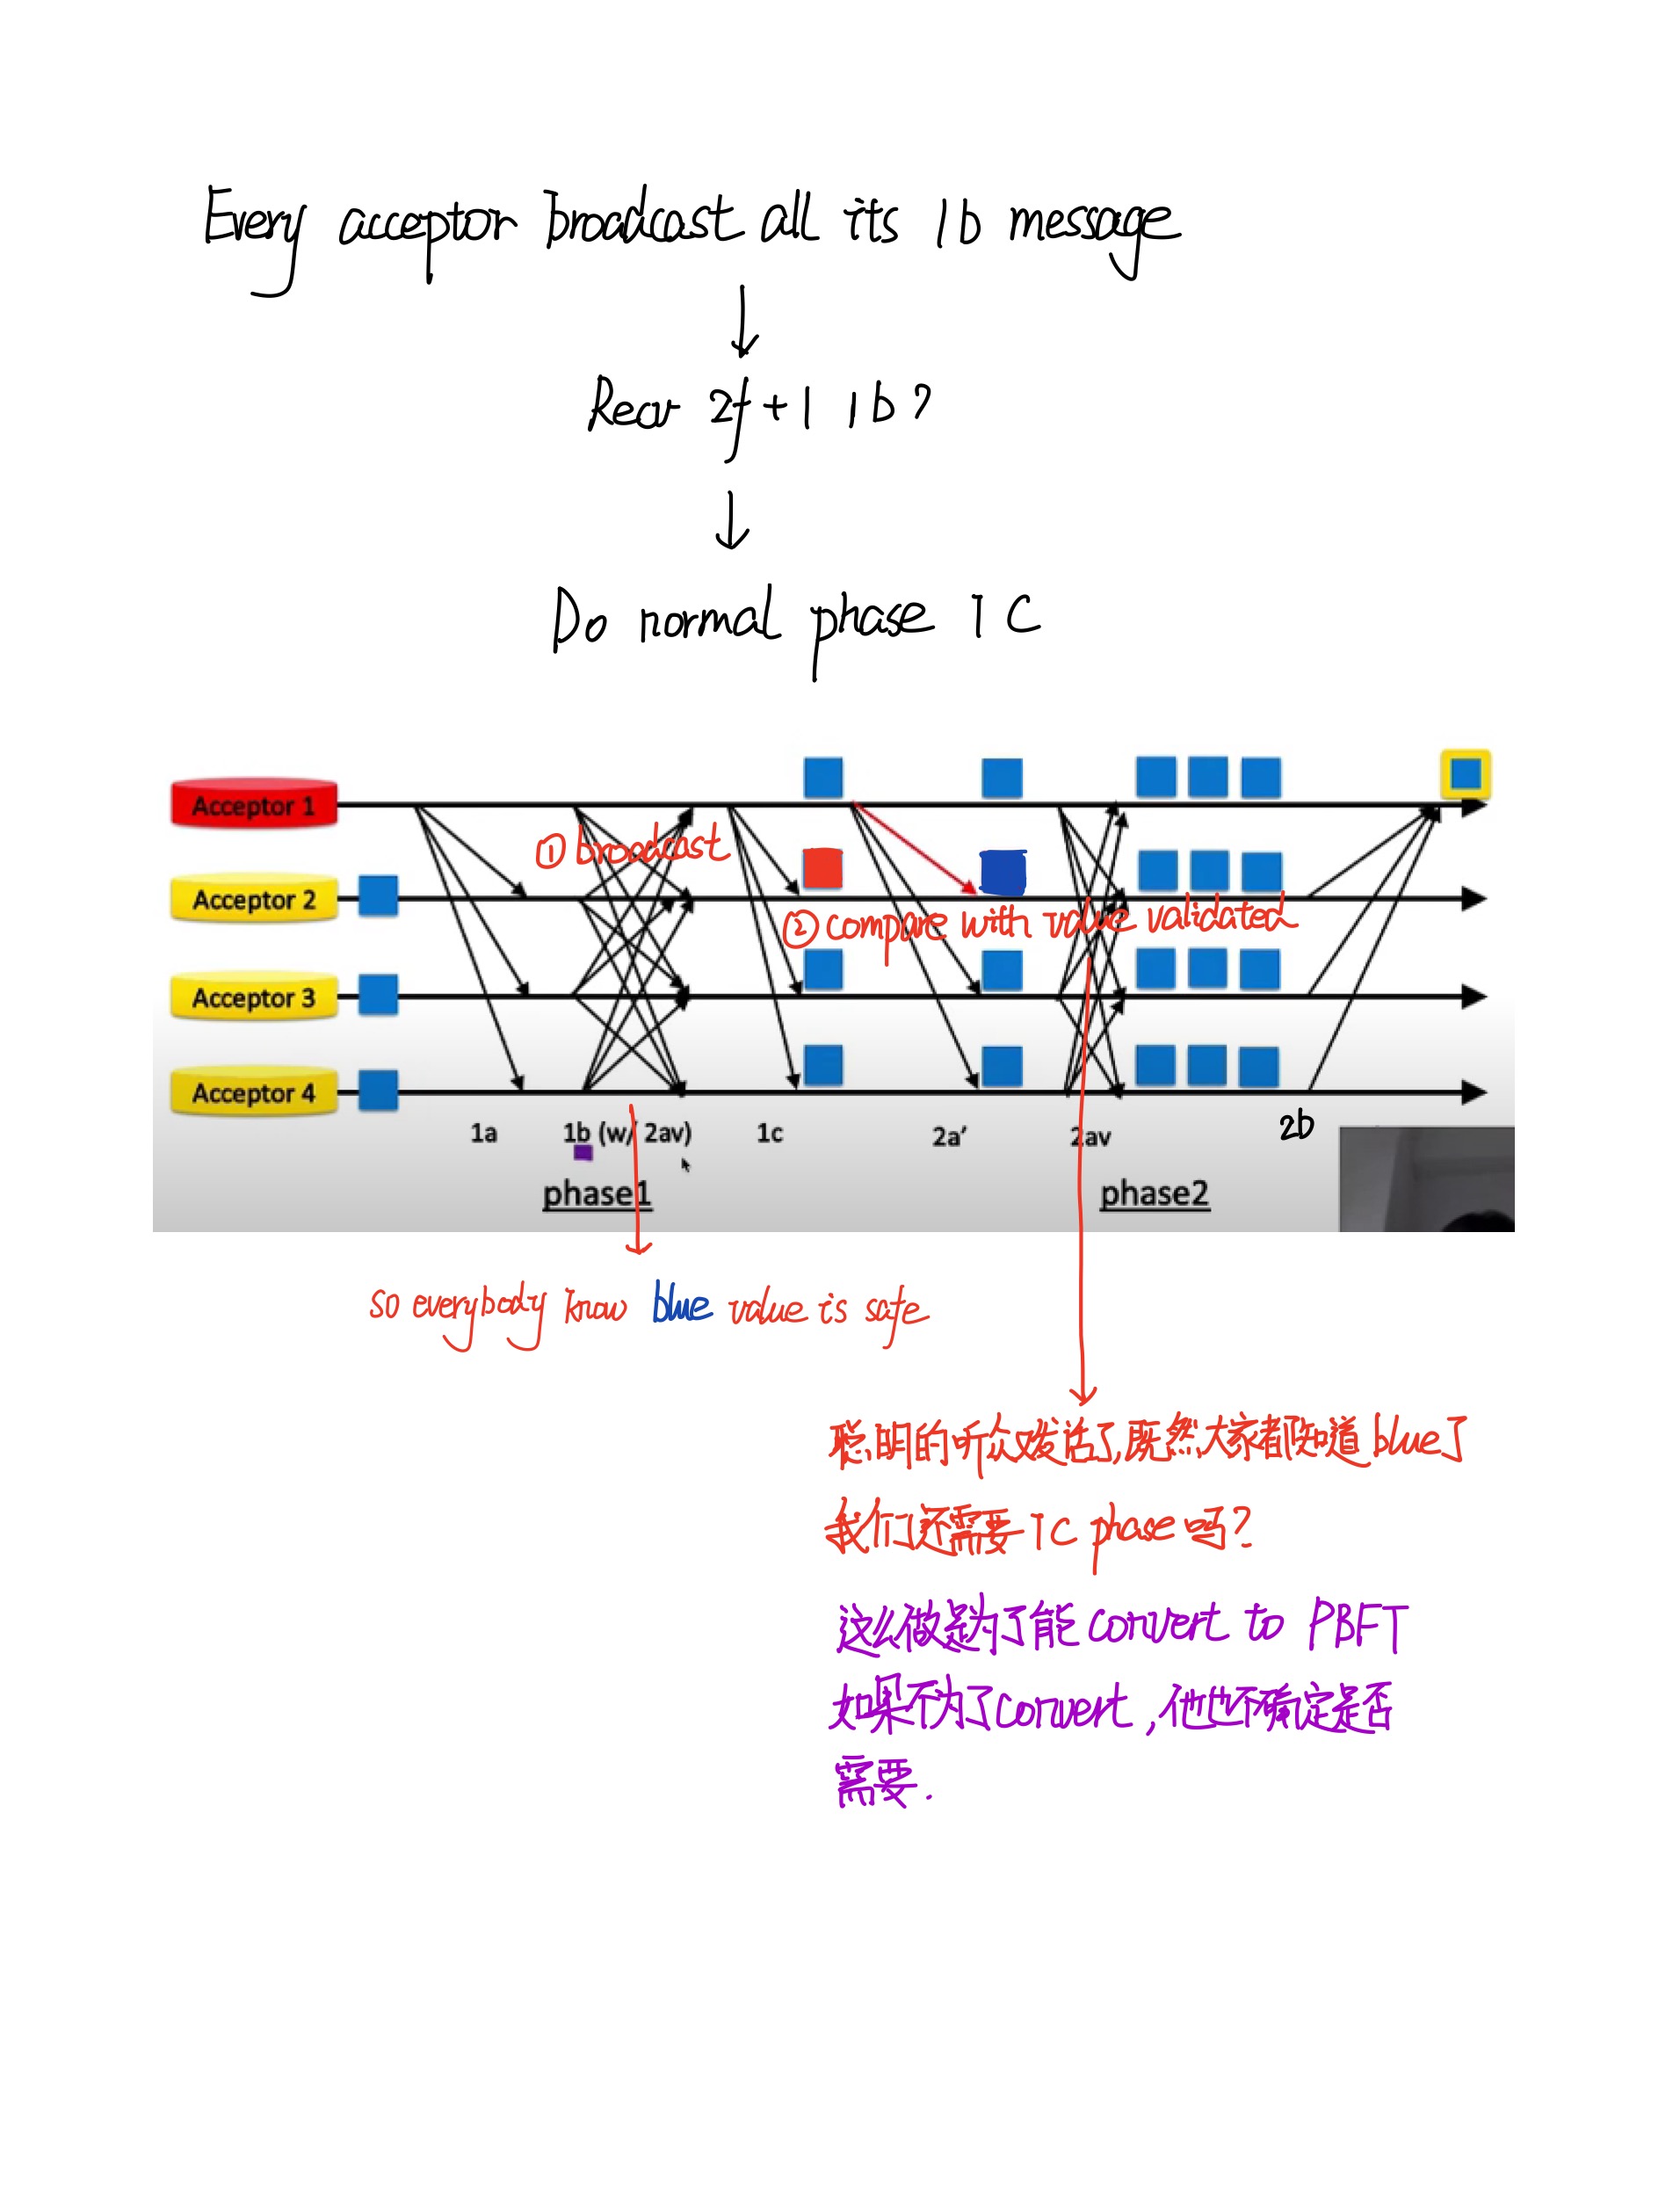 Every acceptor broadcast all its 1b message
Recv 2f+1 1b?
Do normal phase 1C
Acceptor 1
① broadcast
Acceptor 2
② compare with value validated
Acceptor 3
Acceptor 4
1a
1b (w/ 2av)
1c
2a′
2av
2b
phase1
phase2
so everybody know blue value is safe
聪明的听众发话了,既然大家都知道blue了
我们还需要1C phase吗?
这么做是为了能convert to PBFT
如果不为了convert,他也不确定是否
需要.